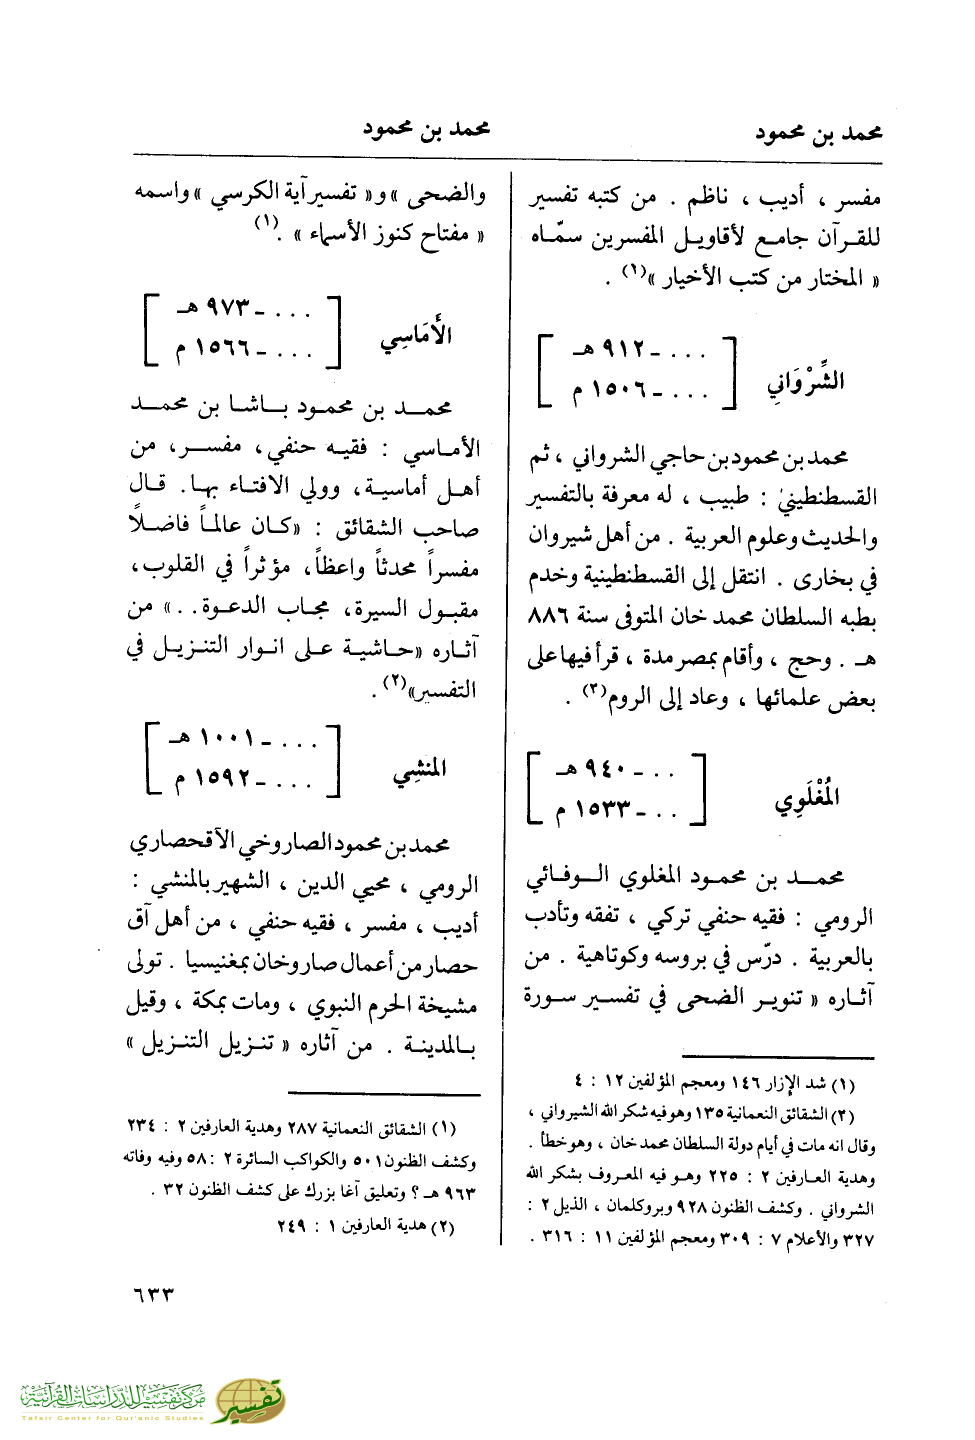 محمد بن محمود
محمد بن محمود
مفسر ، أديب ، ناظم . من كتبه تفسير
للقرآن جامع لأقاويل المفسرين سمّاه
« المختار من كتب الأخيار »(١) .
الشِّرْوَاني
[ . . . ـ ٩١٢ هـ
. . . ـ ١٥٠٦ م ]
محمد بن محمود بن حاجي الشرواني ، ثم
القسطنطيني : طبيب ، له معرفة بالتفسير
والحديث وعلوم العربية . من أهل شيروان
في بخارى . انتقل إلى القسطنطينية وخدم
بطبه السلطان محمد خان المتوفى سنة ٨٨٦
هـ . وحج ، وأقام بمصر مدة ، قرأ فيها على
بعض علمائها ، وعاد إلى الروم(٢) .
المُغْلَوِي
[ . . ـ ٩٤٠ هـ
. . ـ ١٥٣٣ م ]
محمد بن محمود المغلوي الوفائي
الرومي : فقيه حنفي تركي ، تفقه وتأدب
بالعربية . درّس في بروسه وكوتاهية . من
آثاره « تنوير الضحى في تفسير سورة
(١) شد الإزار ١٤٦ ومعجم المؤلفين ١٢ : ٤
(٢) الشقائق النعمانية ١٣٥ وهو فيه شكر الله الشيرواني ،
وقال انه مات في أيام دولة السلطان محمد خان ، وهو خطأ .
وهدية العارفين ٢ : ٢٢٥ وهو فيه المعروف بشكر الله
الشرواني . وكشف الظنون ٩٢٨ وبروكلمان ، الذيل ٢ :
٣٢٧ والأعلام ٧ : ٣٠٩ ومعجم المؤلفين ١١ : ٣١٦ .
والضحى » و« تفسير آية الكرسي » واسمه
« مفتاح كنوز الأسماء » .(١)
الأَمَاسِي
[ . . . ـ ٩٧٣ هـ
. . . ـ ١٥٦٦ م ]
محمد بن محمود باشا بن محمد
الأماسي : فقيه حنفي، مفسر، من
أهل أماسية، وولي الافتاء بها. قال
صاحب الشقائق : «كان عالماً فاضلاً
مفسراً محدثاً واعظاً، مؤثراً في القلوب،
مقبول السيرة، مجاب الدعوة..» من
آثاره «حاشية على انوار التنزيل في
التفسير»(٢).
المنشِي
[ . . . ـ ١٠٠١ هـ
. . . ـ ١٥٩٢ م ]
محمد بن محمود الصاروخي الآقحصاري
الرومي ، محيي الدين ، الشهير بالمنشي :
أديب ، مفسر ، فقيه حنفي ، من أهل آق
حصار من أعمال صاروخان بمغنيسيا . تولى
مشيخة الحرم النبوي ، ومات بمكة ، وقيل
بالمدينة . من آثاره « تنزيل التنزيل »
(١) الشقائق النعمانية ٢٨٧ وهدية العارفين ٢ : ٢٣٤
وكشف الظنون ٥٠١ والكواكب السائرة ٢ : ٥٨ وفيه وفاته
٩٦٣ هـ ؟ وتعليق آغا بزرك على كشف الظنون ٣٢ .
(٢) هدية العارفين ١ : ٢٤٩
٦٣٣
مركز تفسير للدراسات القرآنية
Tafsir Center for Qur'anic Studies
تفسير